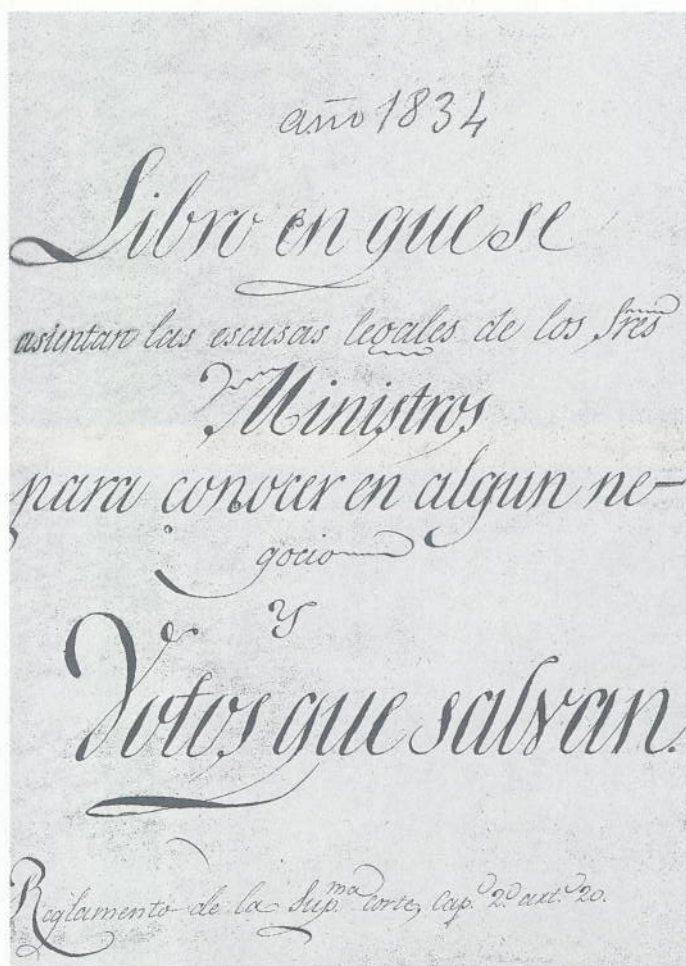 año 1834
Libro en que se
asientan las escusas legales de los Sres
Ministros
para conocer en algun ne-
gocio
Y
Votos que salvan.
Reglamento de la Sup.ma corte, Cap.o 2.o art.o 20.